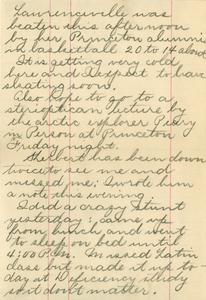 Lawrenceville was
beaten this afternoon
by her Princeton alumni
in basketball 20 to 14 about
It is getting very cold
here and I expect to have
skating soon.
Also hope to go to a
stereoptican lecture by
the arctic explorer Peary
in Person at Princeton
Friday night.
has been down
twice to see me and
missed me; I wrote him
a note this evening
I did a crazy stunt
yesterday; came up
from lunch, and went
to sleep on bed until
4:00 P.M. Missed Latin
class but made it up to-
day in Deficiency study
so it don't matter.